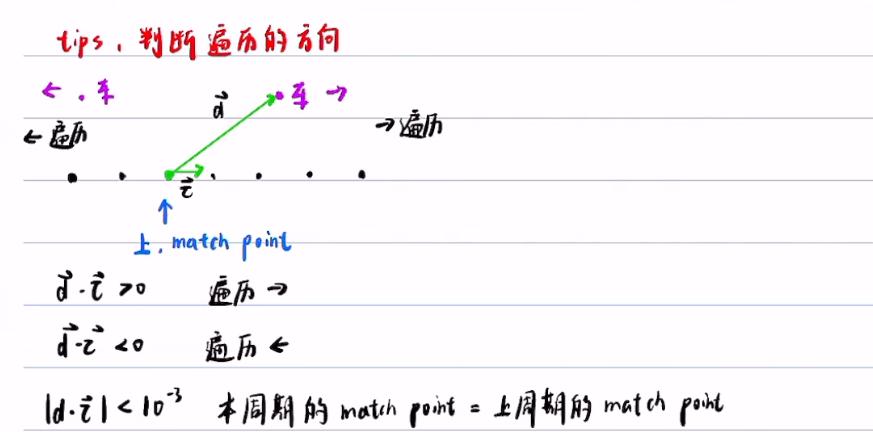 tips，判断遍历的方向
← . 车
d⃗
车 →
← 遍历
→ 遍历
τ⃗
↑
上，match point
d⃗·τ⃗ >0 遍历 →
d⃗·τ⃗ <0 遍历 ←
|d·τ⃗| < 10⁻³ 本周期的 match point = 上周期的 match point